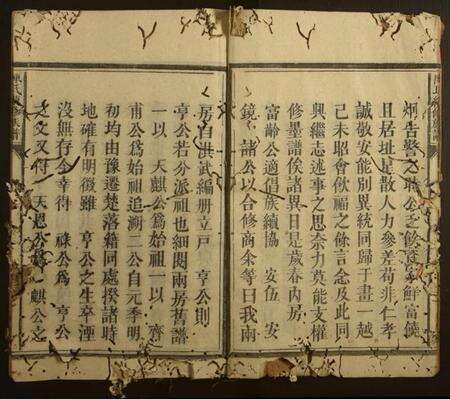 烱告警之聆公之餱食鮮富饒
且居址星散人力參差苟非仁孝
誠敬安能別異統同歸于畫一越
己未昭會飲福之餘言念及此同
興繼志述事之思奈力莫能支權
修墨譜俟諸異日是歲春內房
富齡公適倡族續協 安伍 安
鏡 諸公以合修商余等曰我兩
房自洪武編册立戶 亨公則
亨公若分派祖也細閱兩房舊譜
一以 天麒公為始祖一以 齊
甫公為始祖追溯二公自元季明
初均由豫遷楚落籍同處揆諸時
地確有明徵雖 亨公之生卒湮
沒無存今幸得 祿公為 亨公
之文又得 天恩公為 麒公之